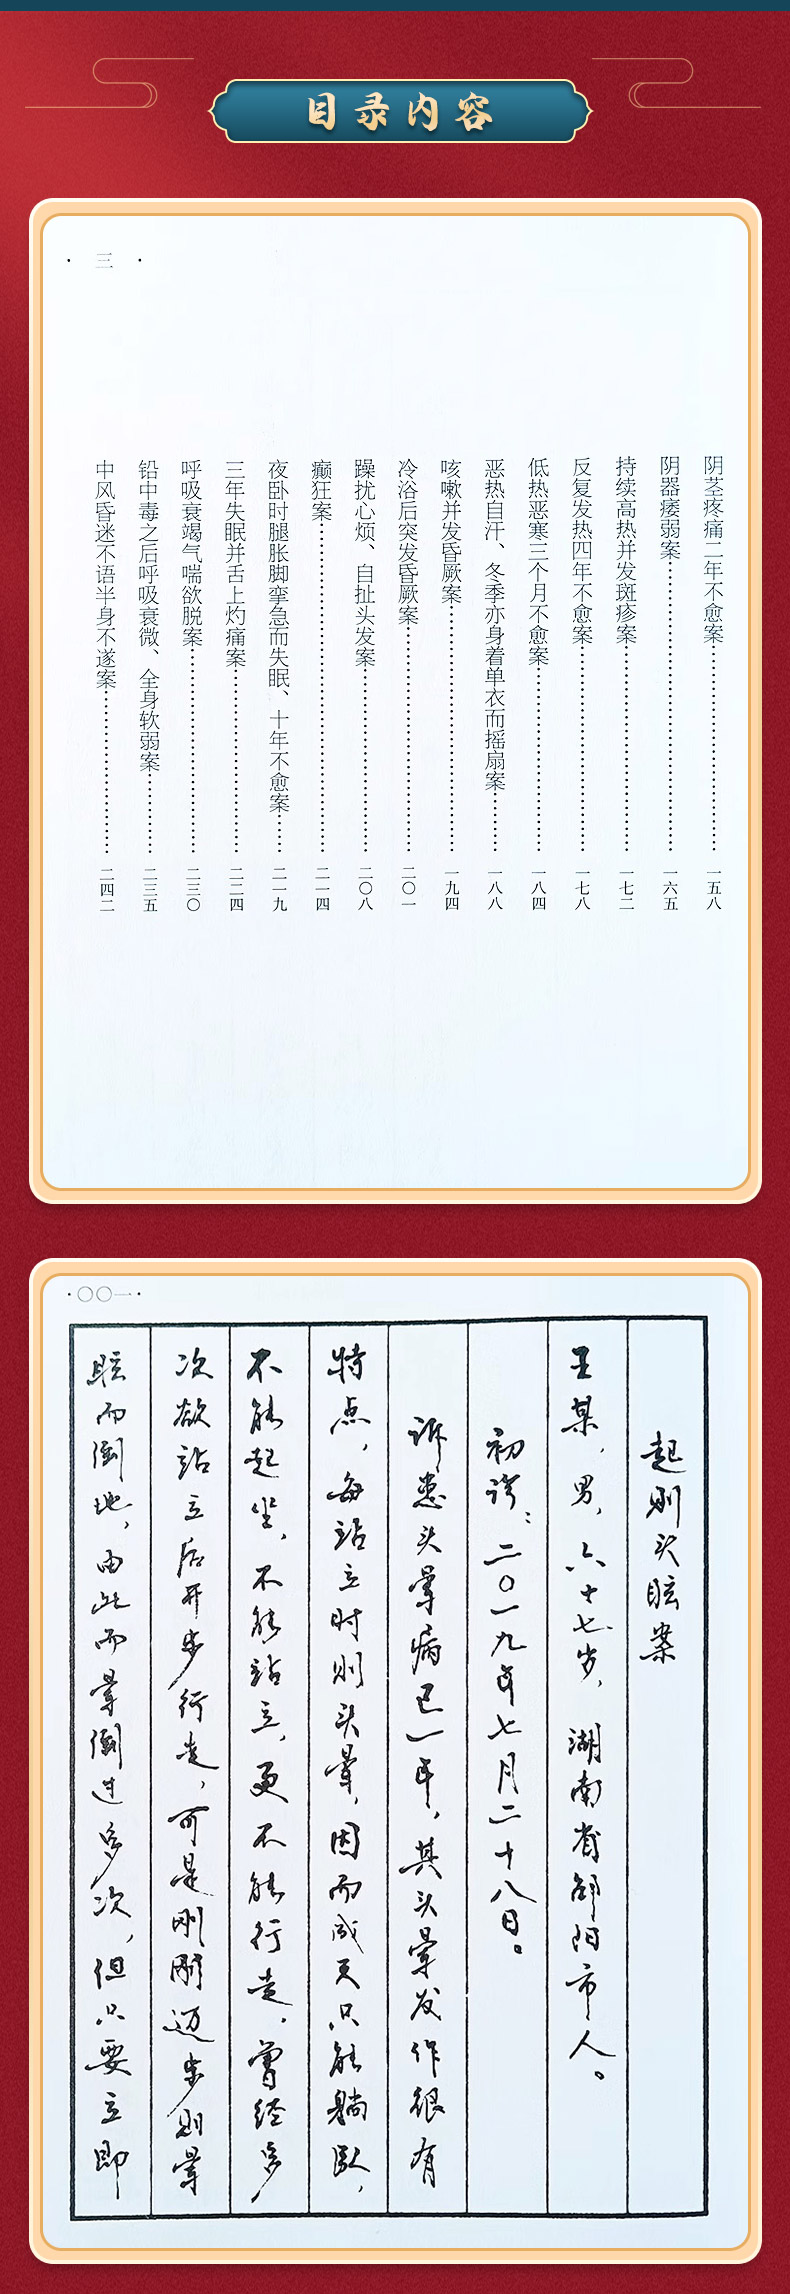 目录内容
·三·
阴茎疼痛二年不愈案……一五八
阴器痿弱案……一六五
持续高热并发斑疹案……一七二
反复发热四年不愈案……一七八
低热恶寒三个月不愈案……一八四
恶热自汗、冬季亦身着单衣而摇扇案……一八八
咳嗽并发昏厥案……一九四
冷浴后突发昏厥案……二〇一
躁扰心烦、自扯头发案……二〇八
癫狂案……二一四
夜卧时腿胀脚挛急而失眠、十年不愈案……二一九
三年失眠并舌上灼痛案……二二四
呼吸衰竭气喘欲脱案……二三〇
铅中毒之后呼吸衰微、全身软弱案……二三五
中风昏迷不语半身不遂案……二四二
·〇〇一·
起则头眩案
王某，男，六十七岁，湖南省邵阳市人。
初诊：二〇一九年七月二十八日。
诉患头晕病已一年，其头晕发作很有
特点，每站立时则头晕，因而成天只能躺卧，
不能起坐，不能站立，更不能行走，曾经多
次欲站立后开步行走，可是刚刚迈步则晕
眩而倒地，由此而晕倒过多次，但只要立即